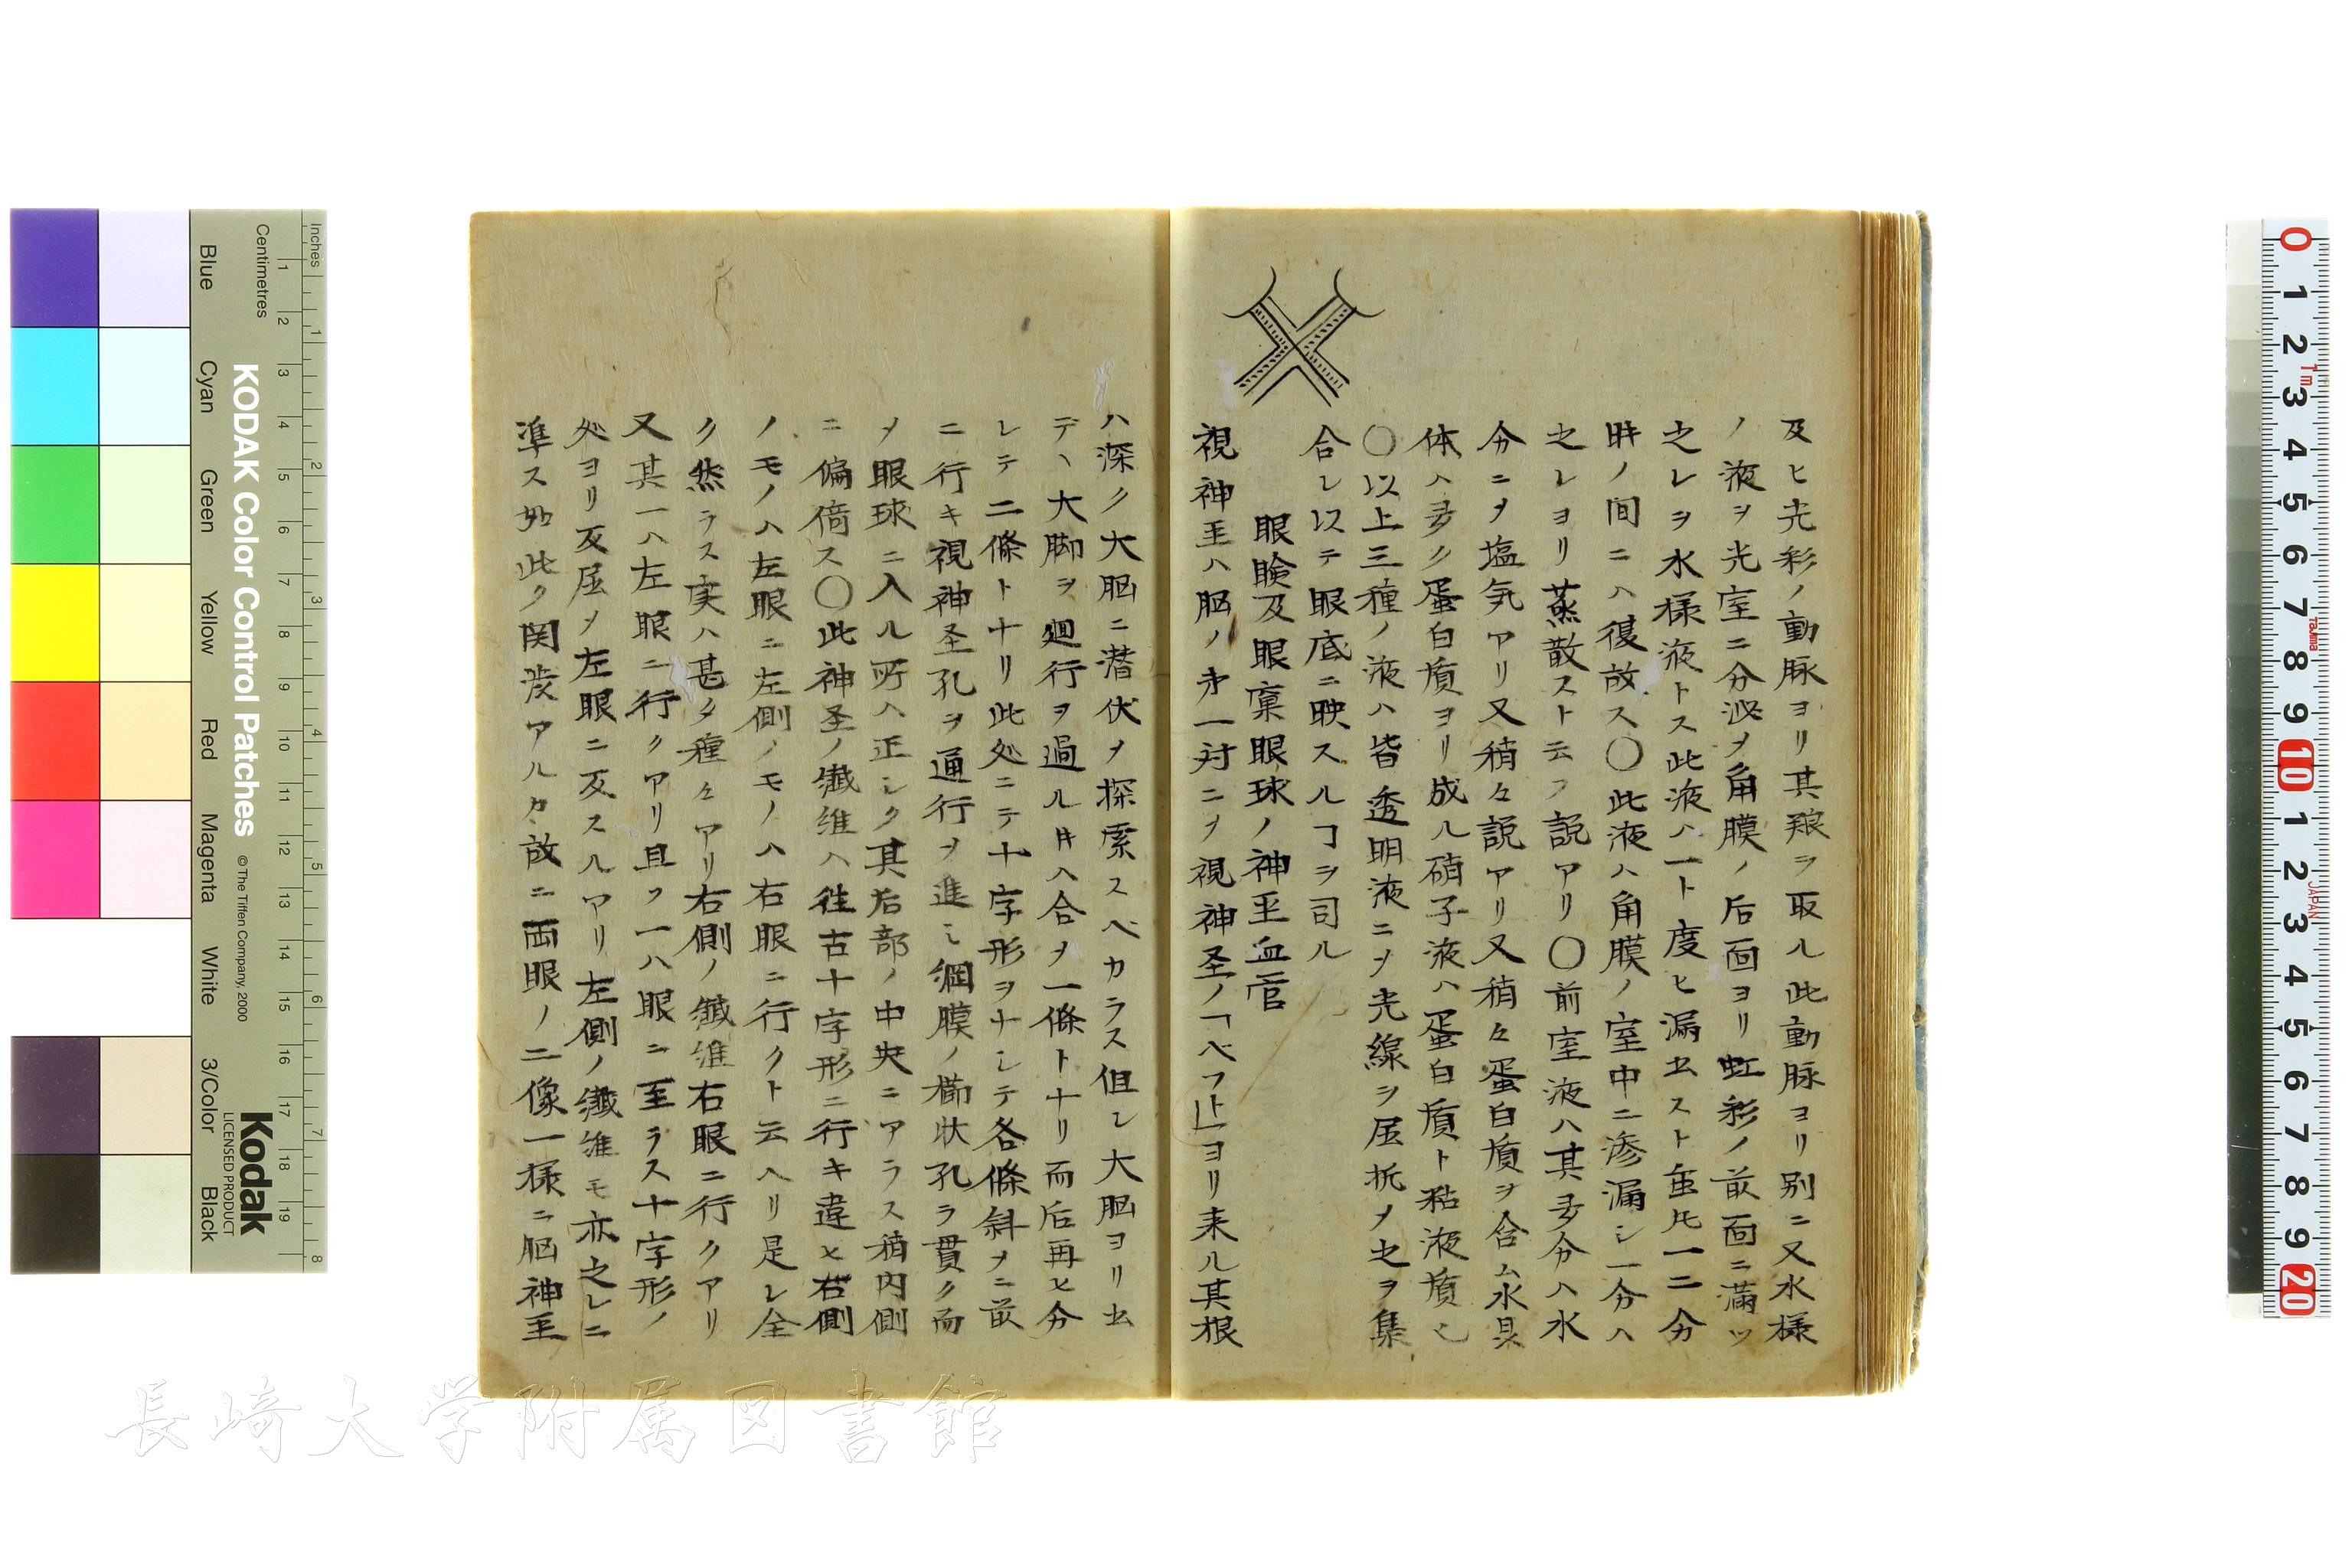 及ヒ光彩ノ動脉ヨリ其源ヲ取ル此動脉ヨリ別ニ又水様
ノ液ヲ光室ニ分泌メ角膜ノ后面ヨリ虹彩ノ前面ニ満ツ
之レヲ水様液トス此液ハ一ト度ヒ漏出スト雖𪜈一二分
時ノ間ニハ復故ス〇此液ハ角膜ノ室中ニ滲漏シ一分ハ
之レヨリ蒸散スト云フ説アリ〇前室液ハ其多分ハ水
分ニメ塩気アリ又稍々説アリ又稍々蛋白質ヲ含ム水晶
体ハ多ク蛋白質ヨリ成ル硝子液ハ蛋白質ト粘液質也
〇以上三種ノ液ハ皆透明液ニメ光線ヲ屈折メ之ヲ集
合シ以テ眼底ニ映スルヿヲ司ル
眼瞼及眼窠眼球ノ神圣血管
視神圣ハ脳ノ第一対ニメ視神圣ノ「ベフト」ヨリ来ル其根
ハ深ク大脳ニ潜伏メ探索スベカラス但シ大脳ヨリ出
デヽ大脚ヲ廻行ヲ過ル𪜈ハ合メ一條トナリ而后再ヒ分
レテ二條トナリ此処ニテ十字形ヲナシテ各條斜メニ前
ニ行キ視神圣孔ヲ通行メ進ミ網膜ノ櫛状孔ヲ貫ク而
メ眼球ニ入ル所ハ正シク其后部ノ中央ニアラス稍内側
ニ偏倚ス〇此神圣ノ纎維ハ往古十字形ニ行キ違ヒ右側
ノモノハ左眼ニ左側ノモノハ右眼ニ行クト云ヘリ是レ全
ク然ラス実ハ甚タ種々アリ右側ノ纎維右眼ニ行クアリ
又其一ハ左眼ニ行クアリ且ツ一ハ眼ニ至ラス十字形ノ
処ヨリ反屈メ左眼ニ反スルアリ左側ノ纎維モ亦之レニ
準ス如此ク関渉アルカ故ニ両眼ノ二像一様ニ脳神圣
KODAK Color Control Patches
© The Tiffen Company, 2000
Kodak
LICENSED PRODUCT
Inches
Centimetres
Blue
Cyan
Green
Yellow
Red
Magenta
White
3/Color
Black
長崎大学附属図書館